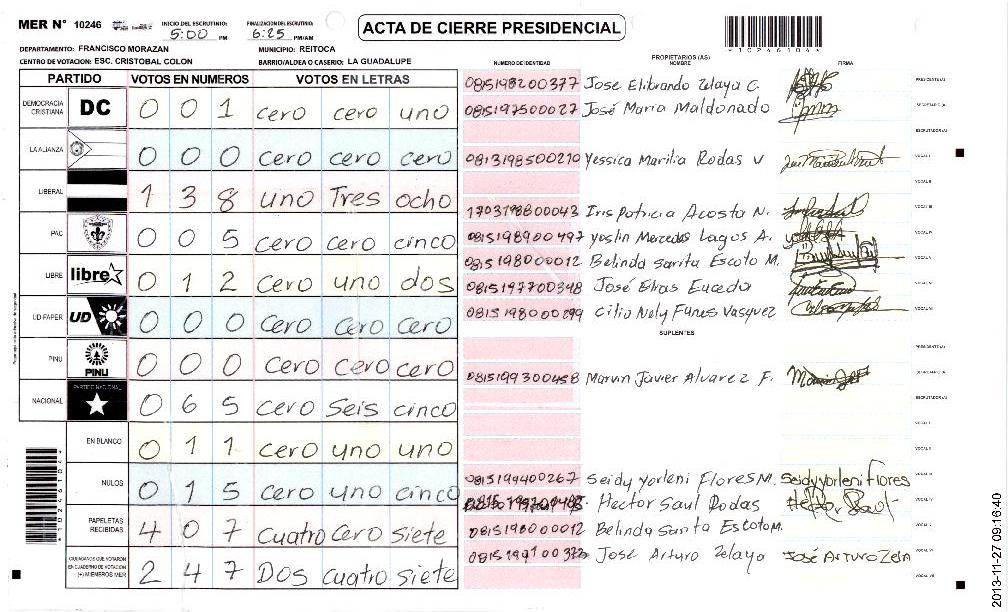 MER N° 10246
INICIO DEL ESCRUTINIO: 5:00 PM
FINALIZACION DEL ESCRUTINIO: 6:25 PM/AM
ACTA DE CIERRE PRESIDENCIAL
10246104
DEPARTAMENTO: FRANCISCO MORAZAN
MUNICIPIO: REITOCA
CENTRO DE VOTACION: ESC. CRISTOBAL COLON
BARRIO/ALDEA O CASERIO: LA GUADALUPE
PARTIDO VOTOS EN NUMEROS VOTOS EN LETRAS
DEMOCRACIA CRISTIANA DC 0 0 1 cero cero uno
LA ALIANZA 0 0 0 cero cero cero
LIBERAL 1 3 8 uno Tres ocho
PAC 0 0 5 cero cero cinco
LIBRE libre 0 1 2 cero uno dos
UD FAPER UD 0 0 0 cero cero cero
PINU PINU 0 0 0 cero cero cero
NACIONAL PARTIDO NACIONAL 0 6 5 cero Seis cinco
EN BLANCO 0 1 1 cero uno uno
NULOS 0 1 5 cero uno cinco
PAPELETAS RECIBIDAS 4 0 7 cuatro cero siete
CIUDADANOS QUE VOTARON EN CUADERNO DE VOTACION (+) MIEMBROS MER 2 4 7 DOS cuatro siete
NUMERO DE IDENTIDAD PROPIETARIOS (AS) NOMBRE FIRMA
0815198200377 Jose Elibrando Zelaya C. PRESIDENTE(A)
0815197500027 José Maria Maldonado SECRETARIO (A)
ESCRUTADOR (A)
0813198500210 Yessica Marilia Rodas V VOCAL I
VOCAL II
1703198800043 Iris Patricia Acosta N. VOCAL III
0815198900497 Yoslin Mercedes Lagos A. VOCAL IV
0815198000012 Belinda Sarita Escoto M. VOCAL V
0815197700348 José Elias Euceda VOCAL VI
0815198000299 Cilio Nely Funes Vasquez VOCAL VII
SUPLENTES
PRESIDENTE(A)
0815199300458 Marvin Javier Alvarez F. SECRETARIO (A)
ESCRUTADOR (A)
VOCAL I
VOCAL II
0815199400267 Seidy Yorleni Flores M. Seidy Yorleni flores VOCAL III
Hector Saul Rodas Hector Saul VOCAL IV
0815198000012 Belinda Sarita Escoto M. VOCAL V
Jose Arturo Zelaya José Arturo VOCAL VI
VOCAL VII
2013-11-27 09:16:40